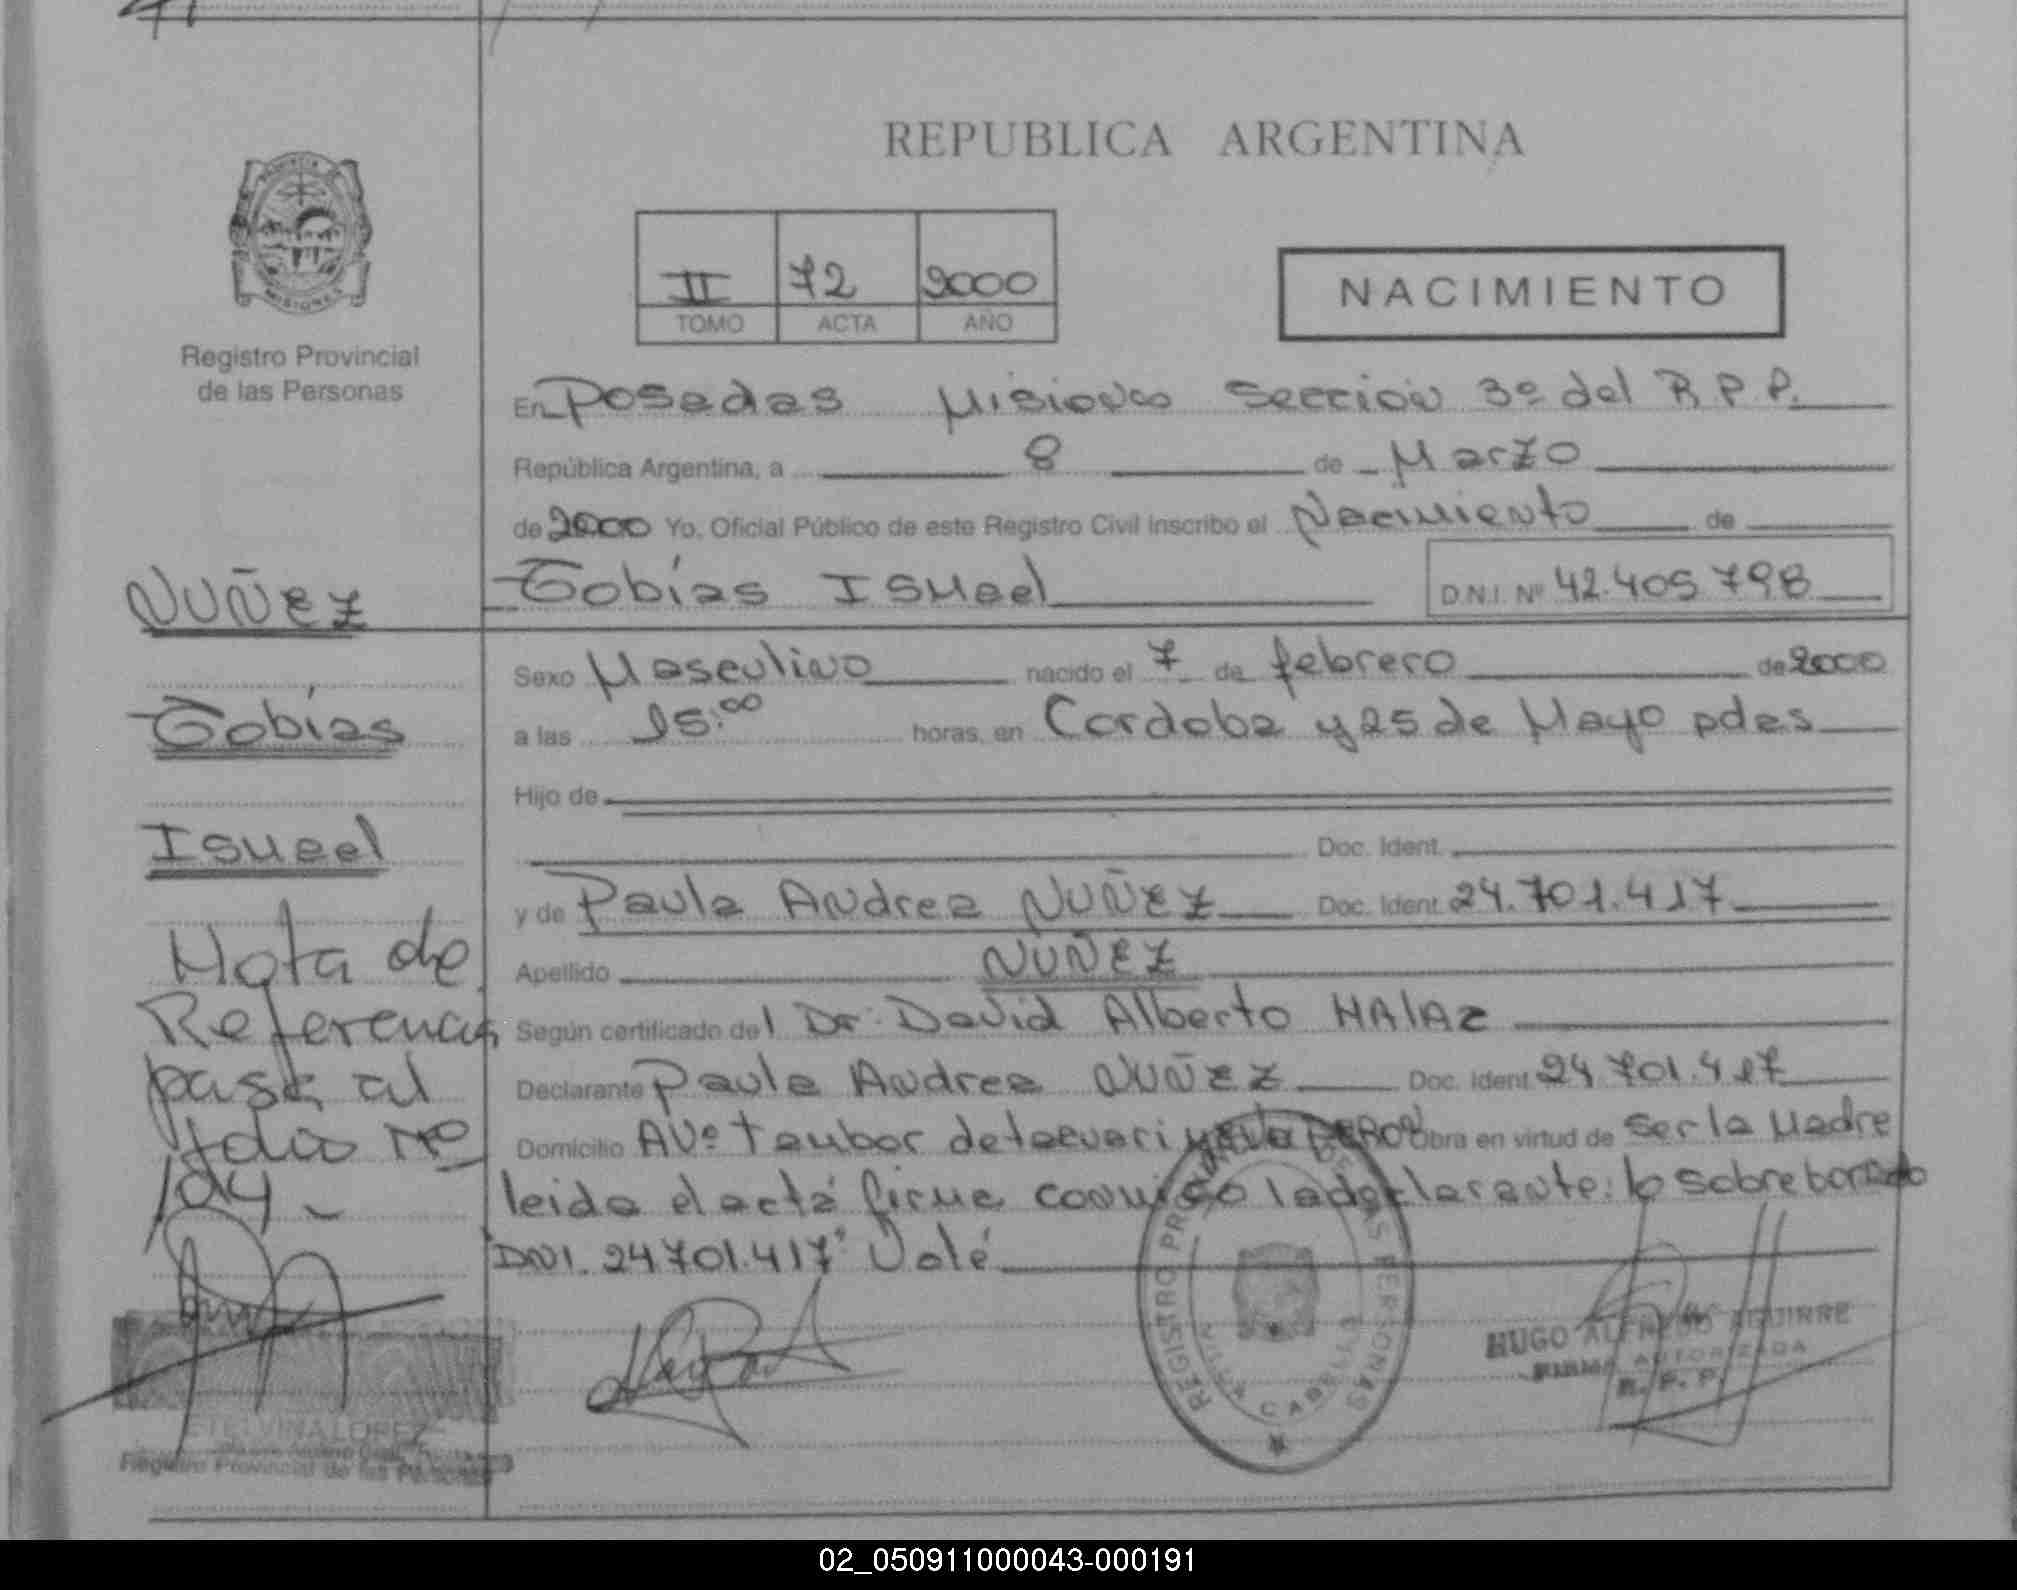 REPUBLICA ARGENTINA
PROVINCIA DE
MISIONES
Registro Provincial
de las Personas
II 72 2000
TOMO ACTA AÑO
NACIMIENTO
En Posadas Misiones Seccion 3º del R.P.P.
República Argentina, a 8 de Marzo
de 2000 Yo, Oficial Público de este Registro Civil inscribo el Nacimiento de
Tobías Ismael D.N.I. Nº 42.405.798
NUÑEZ
Tobías
Ismael
Sexo Masculino nacido el 7 de febrero de 2000
a las 15:00 horas, en Cordoba y 25 de Mayo pdas
Hijo de
Doc. Ident.
y de Paula Andrea NUÑEZ Doc. Ident. 24.701.417
Apellido NUÑEZ
Según certificado del Dr. David Alberto HALAZ
Declarante Paula Andrea NUÑEZ Doc. Ident. 24.701.417
Domicilio AVº Tambor de tacuari y Obra en virtud de ser la Madre
leida el acta firma conmigo la declarante: lo sobreborrado
DNI. 24.701.417" Valé
Nota de
Referencia
pasa al
folio Nº
194 -
ETELVINA LOPEZ
Registro Provincial de las Personas
REGISTRO PROVINCIAL DE LAS PERSONAS
HUGO ALFREDO AGUIRRE
FIRMA AUTORIZADA
R. P. P.
02_050911000043-000191